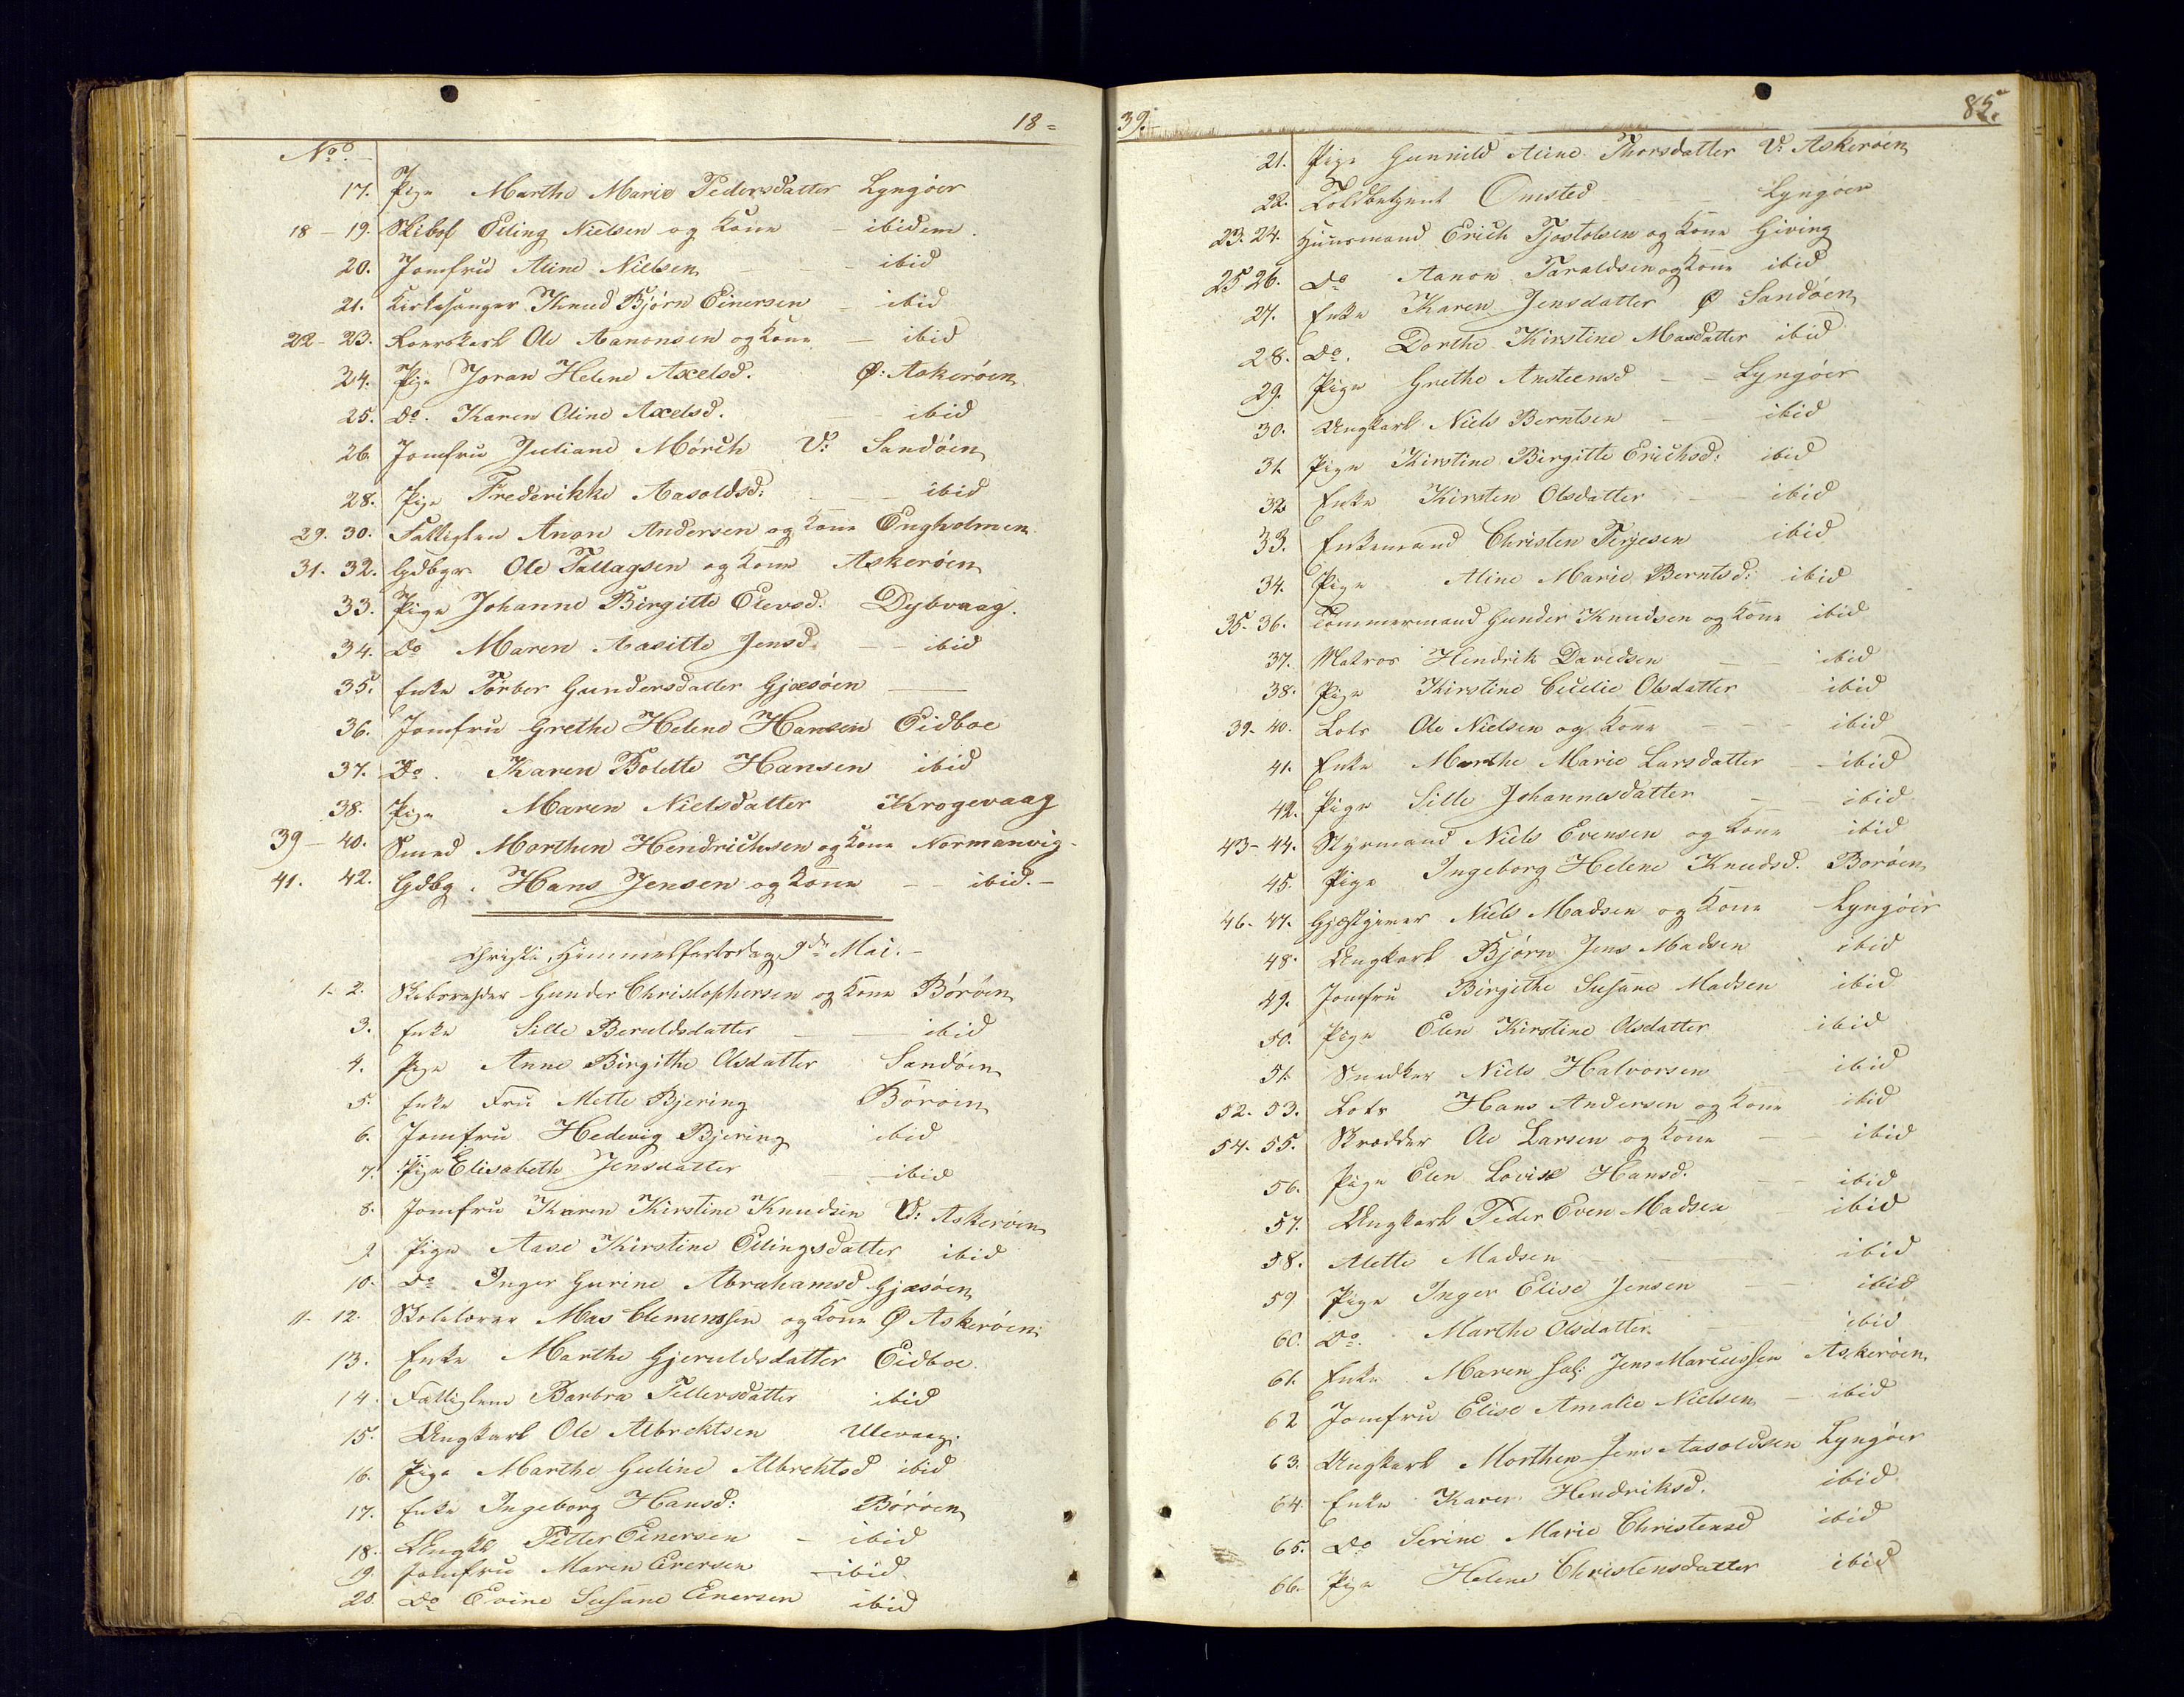 18=
No.
17. Pige Marthe Marie Pedersdatter Lyngöer
18 - 19. Skibsf Eiling Nielsen og Kone - ibidem.
20. Jomfru Aline Nielsen - - ibid
21. Kirkesanger Knud Bjørn Einersen - ibid
22 - 23. Roerskarl Ole Aanonsen og Kone - ibid
24. Pige Joran Helene Axelsd. Ø: Askeröen
25. Do. Karen Oline Axelsd. - ibid
26. Jomfru Juliane Mörch V: Sandöen
28. Pige Frederikke Aasoldsd: - - ibid
29. 30. Fattiglem Anon Andersen og Kone Engholmen
31. 32. Gdbgr. Ole Tallagsen og Kone Askeröen
33. Pige Johanne Birgitte Elevsd. Dybvaag.
34. Do Maren Aasitte Jensd. - - ibid
35. Enke Torber Gundersdatter Gjæsöen
36. Jomfru Grethe Helene Hansen Eidboe
37. Do. Karen Bolette Hansen ibid
38. Pige Maren Nielsdatter Krogevaag
39 - 40. Smed Morthen Hendrichsen og Kone Normanvig-
41. 42. Gdbg. Hans Jensen og Kone - - ibid. -
Christi Himmelfartsdag 9de Mai. -
1- 2. Skibsreder Gunder Christophersen og Kone Böröen
3. Enke Sille Beruldsdatter - - ibid
4. Pige Anne Birgithe Olsdatter Sandöen
5. Enke Fru Mette Bjering Böröen
6. Jomfru Hedevig Bjering ibid
7. Pige Elisabeth Jensdatter - ibid
8. Jomfru Karen Kirstine Knudsen V: Askeröen
9 Pige Aase Kirstine Eilingsdatter ibid
10. Do Inger Gurine Abrahamsd Gjæsöen
11- 12. Skolelærer Mas Clemenssen og Kone Ø Askeröen
13. Enke Marthe Gjeruldsdatter Eidboe.
14. Fattiglem Barbra Tellersdatter ibid
15. Ungkarl Ole Albrektsen Ulevaag.
16. Pige Marthe Guline Albrektsd ibid
17. Enke Ingeborg Hansd: Böröen
18. Ungk Petter Einersen - ibid
19. Jomfru Maren Einersen - ibid.
20. Do Evine Susane Einersen ibid
39.
85.
21. Pige Gunnild Aline Thorsdatter V: Askeröen
22. Toldbetjent Omsted - - Lyngöer
23. 24. Huusmand Erich Tjostolsen og Kone Giving
25 26. Do Aanon Taraldsen og Kone ibid
27. Enke Karen Jensdatter Ø Sandöen
28. Do. Dorthe Kirstine Masdatter ibid
29. Pige Grethe Ansteensd - - Lyngöer
30. Ungkarl Niels Berntsen - ibid
31. Pige Kirstine Birgitte Erichsd: ibid
32 Enke Kirsten Olsdatter - ibid
33. Enkemand Christen Terjesen ibid
34. Pige Aline Marie Berntsd: ibid
35- 36. Tömmermand Gunder Knudsen og Kone ibid
37. Matros Hendrik Davidsen - - ibid
38. Pige Kirstine Cecilie Olsdatter ibid
39- 40. Lots Ole Nielsen og Kone - - - ibid
41. Enke Marthe Marie Larsdatter - ibid
42. Pige Sille Johannesdatter - - ibid
43- 44. Styrmand Niels Evensen og Kone ibid
45. Pige Ingeborg Helene Knudsd. Boröen
46- 47. Gjæstgiver Niels Madsen og Kone Lyngöer
48. Ungkarl Bjørn Jens Madsen ibid
49. Jomfru Birgithe Susane Madsen ibid
50. Pige Elen Kirstine Olsdatter ibid
51. Snedker Niels Halvorsen - ibid
52. 53. Lots Hans Andersen og Kone ibid
54. 55. Skrædder Ole Larsen og Kone - - ibid
56. Pige Elen Lovise Hansd. - - ibid
57. Ungkarl Peder Even Madsen - ibid
58. Alette Madsen - - ibid
59 Pige Inger Elise Jensen - - ibid
60. Do. Marthe Olsdatter - ibid
61. Enke Maren sal: Jens Marcussen Askeröen
62 Jomfru Elise Amalie Nielsen - ibid
63. Ungkarl Morthen Jens Aasoldsen Lyngöer
64. Enke Karen Hendriksd. ibid
65. Do Serine Marie Christensd ibid
66. Pige Helene Christensdatter ibid